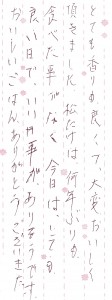 とても香りも良くって大変おいしく
頂きました 松たけは何年ぶりも
食べた事がなく 今日はとっても
良い日で、いい事がありそうです
おいしいごはんありがとうございました